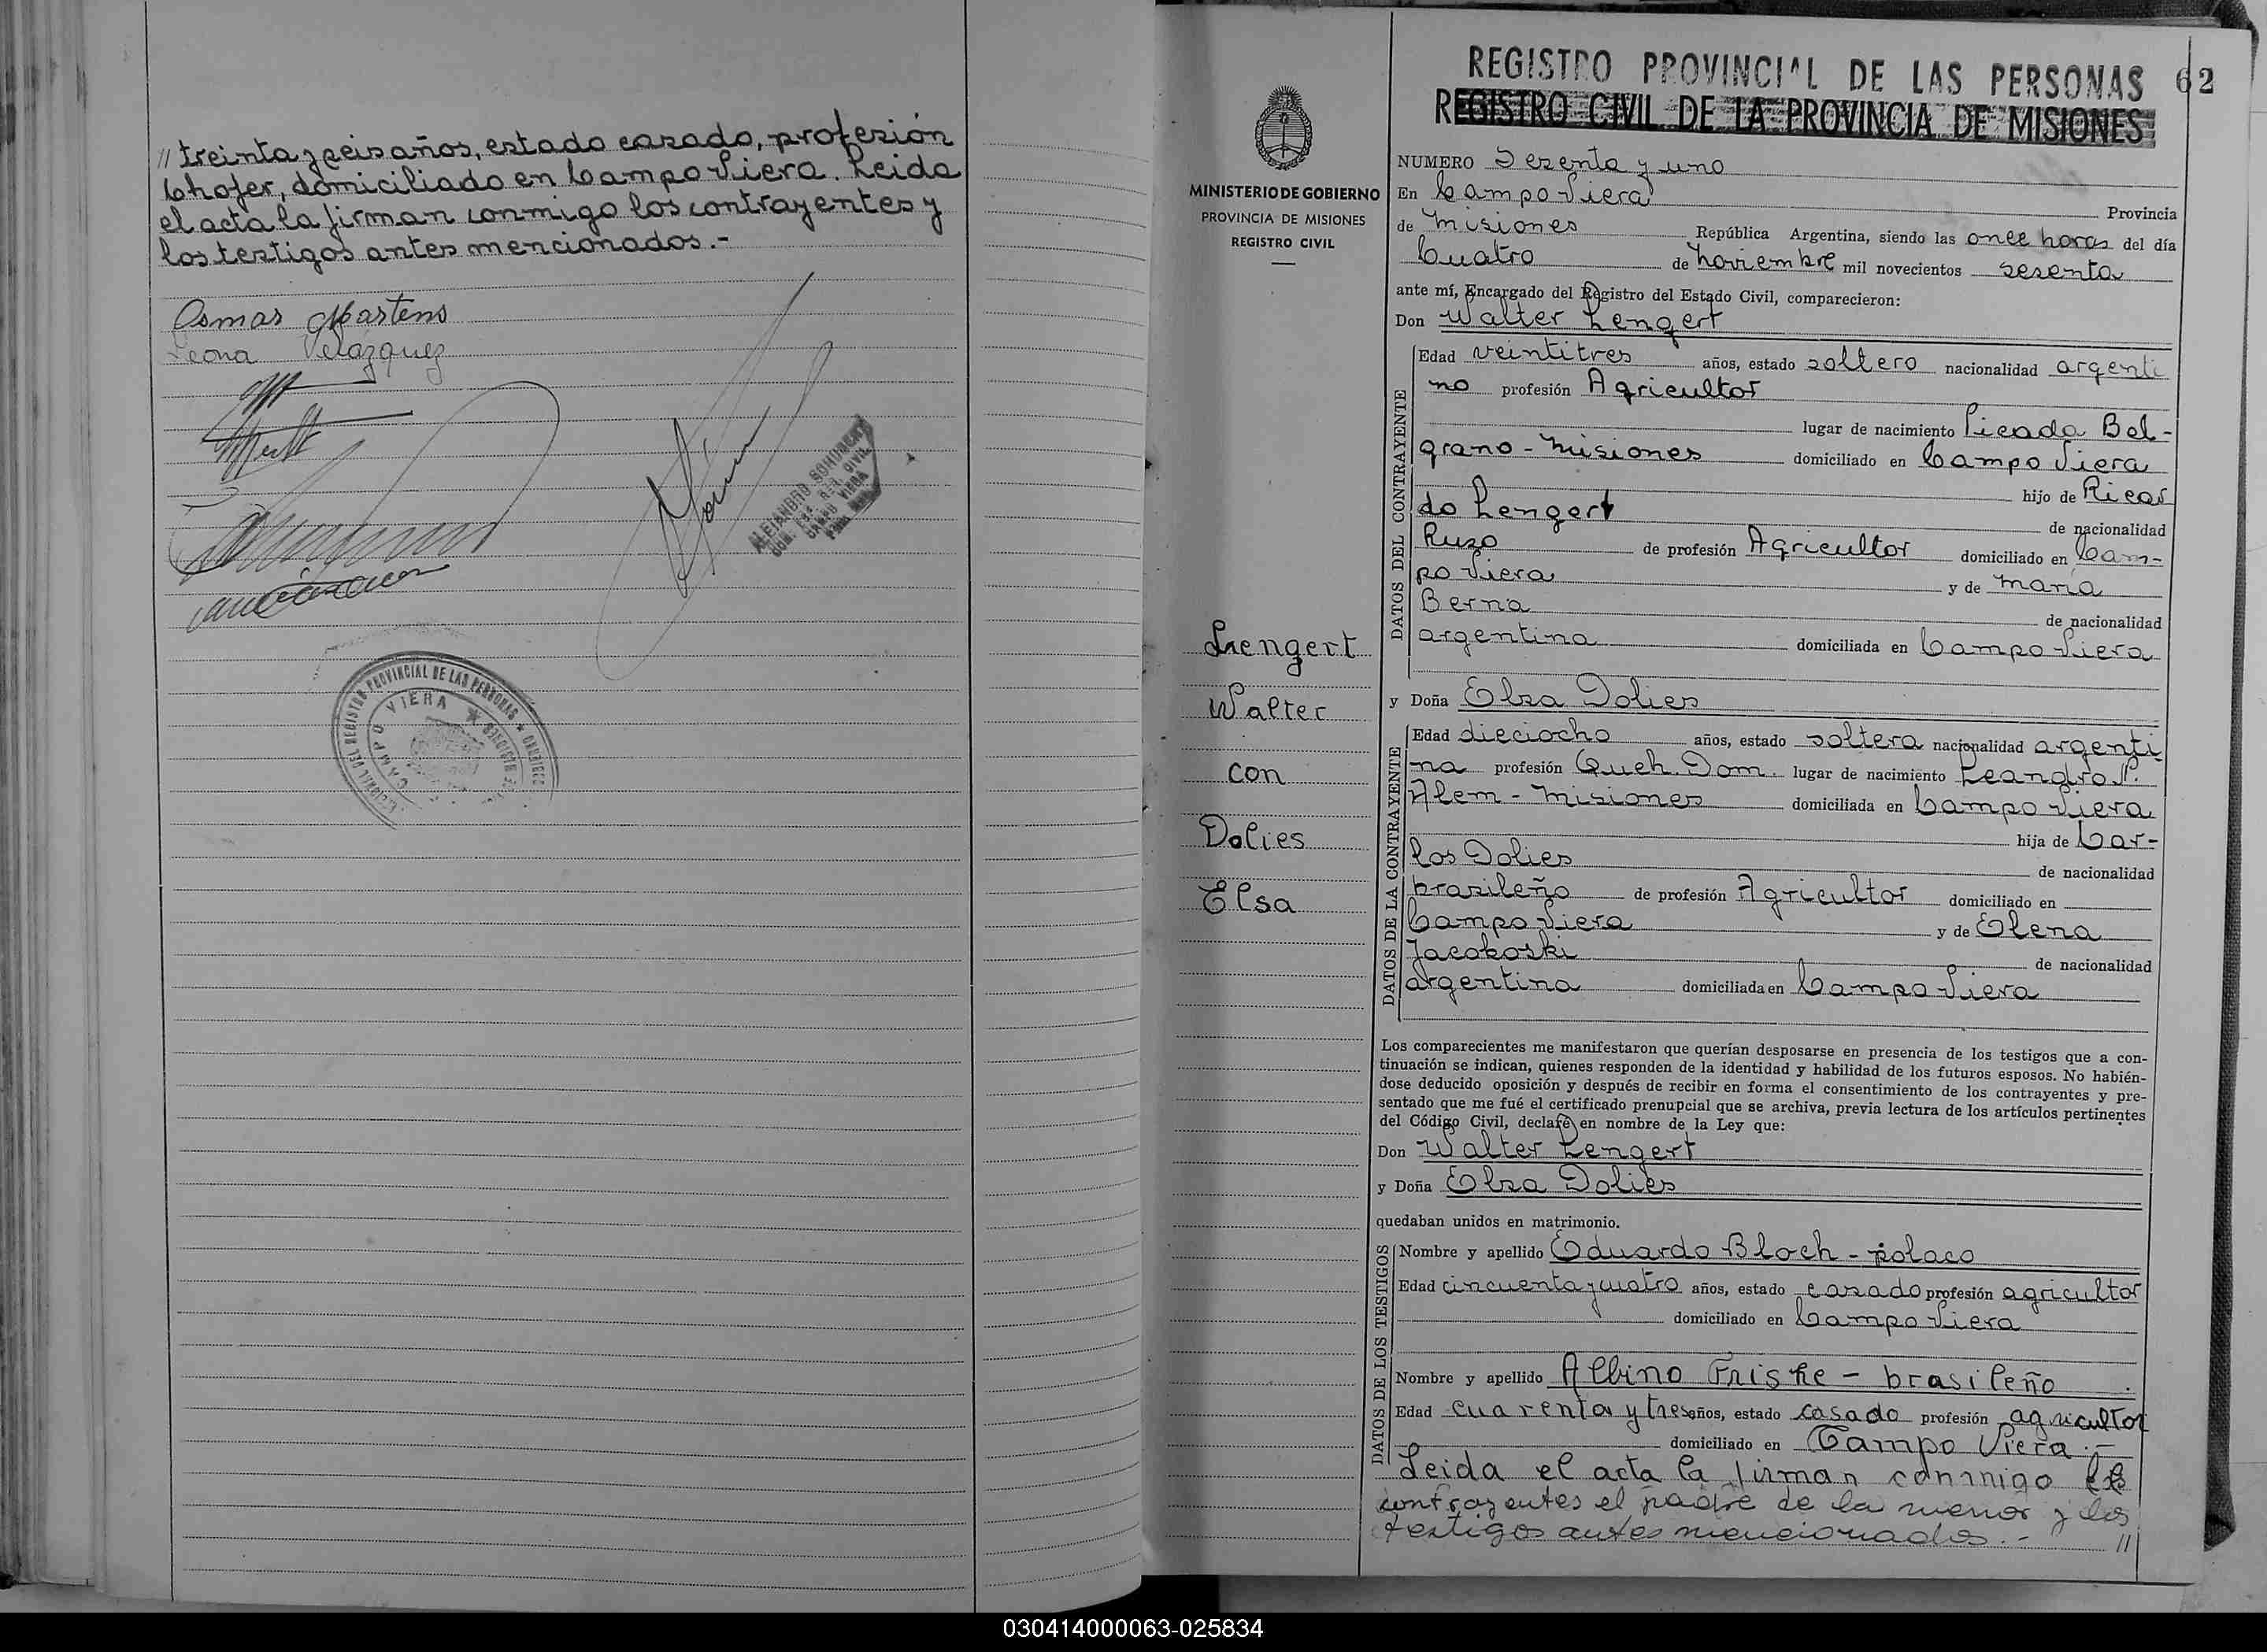 // treinta y seis años, estado casado, profesión
Chofer, domiciliado en Campo Viera. Leida
el acta la firman conmigo los contrayentes y
los testigos antes mencionados.-
Osmar Martens
Leona Velazquez
ALEJANDRO SCHUBERT
CAMPO VIERA
REGISTRO PROVINCIAL DE LAS PERSONAS
CAMPO VIERA
REGISTRO PROVINCIAL DE LAS PERSONAS 62
REGISTRO CIVIL DE LA PROVINCIA DE MISIONES
MINISTERIO DE GOBIERNO
PROVINCIA DE MISIONES
REGISTRO CIVIL
Lengert
Walter
con
Dolies
Elsa
NUMERO Sesenta y uno
En Campo Viera Provincia
de Misiones República Argentina, siendo las once horas del día
Cuatro de Noviembre mil novecientos sesenta
ante mí, Encargado del Registro del Estado Civil, comparecieron:
Don Walter Lengert
DATOS DEL CONTRAYENTE
Edad veintitres años, estado soltero nacionalidad argenti
no profesión Agricultor
lugar de nacimiento Picada Bel-
grano - Misiones domiciliado en Campo Viera
hijo de Ricar
do Lengert de nacionalidad
Ruso de profesión Agricultor domiciliado en Cam-
po Viera y de María
Berna de nacionalidad
argentina domiciliada en Campo Viera
y Doña Elsa Dolies
DATOS DE LA CONTRAYENTE
Edad dieciocho años, estado soltera nacionalidad argenti
na profesión Queh. Dom. lugar de nacimiento Leandro N.
Alem - Misiones domiciliada en Campo Viera
hija de Car-
los Dolies de nacionalidad
brasileño de profesión Agricultor domiciliado en
Campo Viera y de Elena
Jacoboski de nacionalidad
argentina domiciliada en Campo Viera
Los comparecientes me manifestaron que querían desposarse en presencia de los testigos que a con-
tinuación se indican, quienes responden de la identidad y habilidad de los futuros esposos. No habién-
dose deducido oposición y después de recibir en forma el consentimiento de los contrayentes y pre-
sentado que me fué el certificado prenupcial que se archiva, previa lectura de los artículos pertinentes
del Código Civil, declaré en nombre de la Ley que:
Don Walter Lengert
y Doña Elsa Dolies
quedaban unidos en matrimonio.
DATOS DE LOS TESTIGOS
Nombre y apellido Eduardo Bloch - polaco
Edad cincuenta y cuatro años, estado casado profesión agricultor
domiciliado en Campo Viera
Nombre y apellido Albino Friske - brasileño
Edad cuarenta y tres años, estado casado profesión agricultor
domiciliado en Campo Viera.-
Leida el acta la firman conmigo los
contrayentes el padre de la menor y los
testigos antes mencionados.- //
030414000063-025834